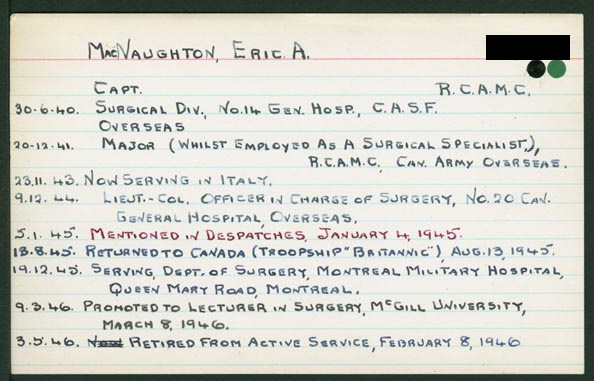 MacNAUGHTON, ERIC A.
CAPT. R.C.A.M.C.
30-6-40. SURGICAL DIV., No.14 GEN. HOSP., C.A.S.F.
OVERSEAS
20-12-41. MAJOR (WHILST EMPLOYED AS A SURGICAL SPECIALIST,),
R.C.A.M.C, CAN. ARMY OVERSEAS.
23.11.43. NOW SERVING IN ITALY.
9.12.44. LIEUT.-COL. OFFICER IN CHARGE OF SURGERY, No.20 CAN.
GENERAL HOSPITAL, OVERSEAS.
5.1.45. MENTIONED IN DESPATCHES, JANUARY 4, 1945.
13.8.45. RETURNED TO CANADA (TROOPSHIP "BRITANNIC"), AUG.13, 1945.
19.12.45. SERVING, DEPT. OF SURGERY, MONTREAL MILITARY HOSPITAL,
QUEEN MARY ROAD, MONTREAL.
9.3.46. PROMOTED TO LECTURER IN SURGERY, McGILL UNIVERSITY,
MARCH 8, 1946.
3.5.46. RETIRED FROM ACTIVE SERVICE, FEBRUARY 8, 1946